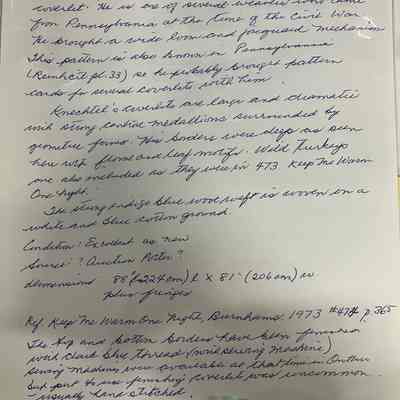 coverlet. He is one of several weavers who came
from Pennsylvania at the time of the Civil War.
He brought a wide loom and jacquard mechanism
This pattern is also known in Pennsylvania
(Reinhert pl. 33) so he probably brought pattern
cards for several coverlets with him.
Knechtel's coverlets are large and dramatic
with strong central medallions surrounded by
geometric forms. His borders were deep as seen
here with floral and leaf motifs. Wild Turkeys
are also included as they were in 473 Keep Me Warm
One Night.
The strong indigo blue wool weft is woven on a
white and blue cotton ground.
Condition: Excellent as new
Source: ? Auction Notes?
dimensions 88" (224 cm) l x 81" (206 cm) w
plus fringes
Ref. Keep Me Warm One Night, Burnhams. 1973 #474 p. 365
The top and bottom borders have been finished
with dark blue thread (with sewing machine)
Sewing machines were available at that time in Ontario
but part to use finishing coverlet was uncommon.
- usually hand stitched.